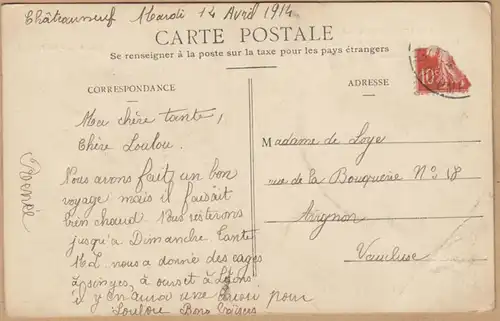 Châteauneuf Mardi 14 Avril 1914
CARTE POSTALE
Se renseigner à la poste sur la taxe pour les pays étrangers
CORRESPONDANCE
ADRESSE
10c
Ma chère tante,
Chère Loulou.
Nous avons fait un bon
voyage mais il faisait
très chaud Nous resterons
jusqu'a Dimanche. Tante
M L. nous a donné des cages
à singes, à ours et à Lions
il y en aura une aussi pour
Loulou Bons Baisers
Madame de Loye
rue de la Bouquerie No 18
Avignon
Vaucluse